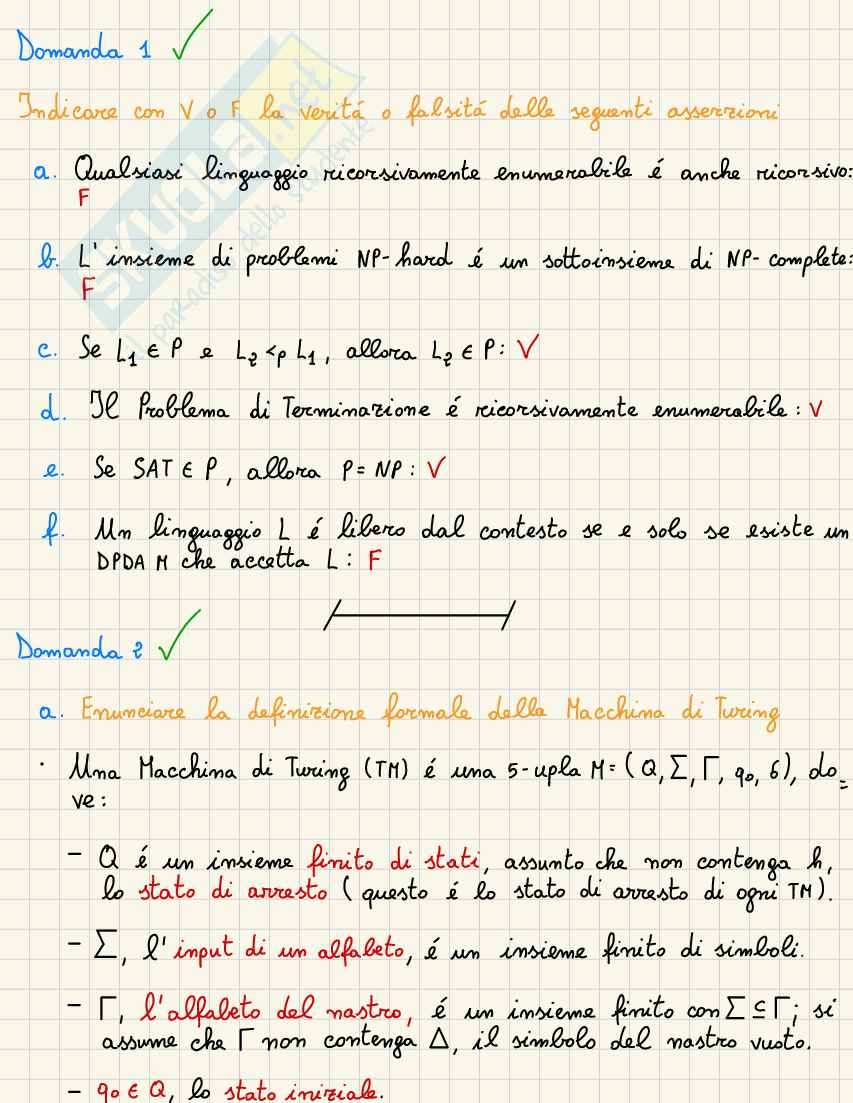 Domanda 1
Indicare con V o F la veritá o falsitá delle seguenti asserzioni
a. Qualsiasi linguaggio ricorsivamente enumerabile é anche ricorsivo:
F
b. L'insieme di problemi NP-hard é un sottoinsieme di NP-complete:
F
c. Se L₁ ∈ P e L₂ <p L₁, allora L₂ ∈ P: V
d. Il Problema di Terminazione é ricorsivamente enumerabile: V
e. Se SAT ∈ P, allora P = NP: V
f. Un linguaggio L é libero dal contesto se e solo se esiste un
DPDA M che accetta L: F
Domanda 2
a. Enunciare la definizione formale della Macchina di Turing
· Una Macchina di Turing (TM) é una 5-upla M = (Q, Σ, Γ, q₀, δ), do=
ve:
- Q é un insieme finito di stati, assunto che non contenga h,
lo stato di arresto (questo é lo stato di arresto di ogni TM).
- Σ, l'input di un alfabeto, é un insieme finito di simboli.
- Γ, l'alfabeto del nastro, é un insieme finito con Σ ⊆ Γ; si
assume che Γ non contenga Δ, il simbolo del nastro vuoto.
- q₀ ∈ Q, lo stato iniziale.
SKUOLA.net
il paradiso dello studente